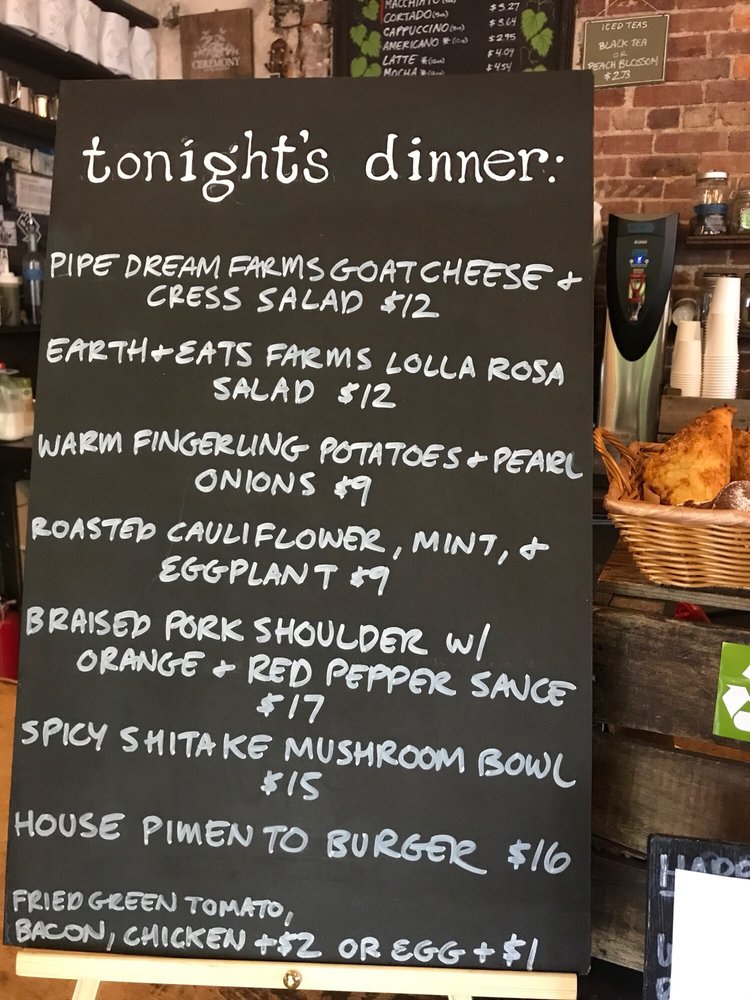 MACCHIATO $3.27
CORTADO $3.64
CAPPUCCINO $2.95
AMERICANO * $4.09
LATTE * $4.54
MOCHA *
ICED TEAS
BLACK TEA
OR
PEACH BLOSSOM
$2.73
CEREMONY
tonight's dinner:
PIPE DREAM FARMS GOAT CHEESE &
CRESS SALAD $12
EARTH & EATS FARMS LOLLA ROSA
SALAD $12
WARM FINGERLING POTATOES & PEARL
ONIONS $9
ROASTED CAULIFLOWER, MINT, &
EGGPLANT $9
BRAISED PORK SHOULDER W/
ORANGE & RED PEPPER SAUCE
$17
SPICY SHITAKE MUSHROOM BOWL
$15
HOUSE PIMENTO BURGER $16
FRIED GREEN TOMATO,
BACON, CHICKEN +$2 OR EGG +$1